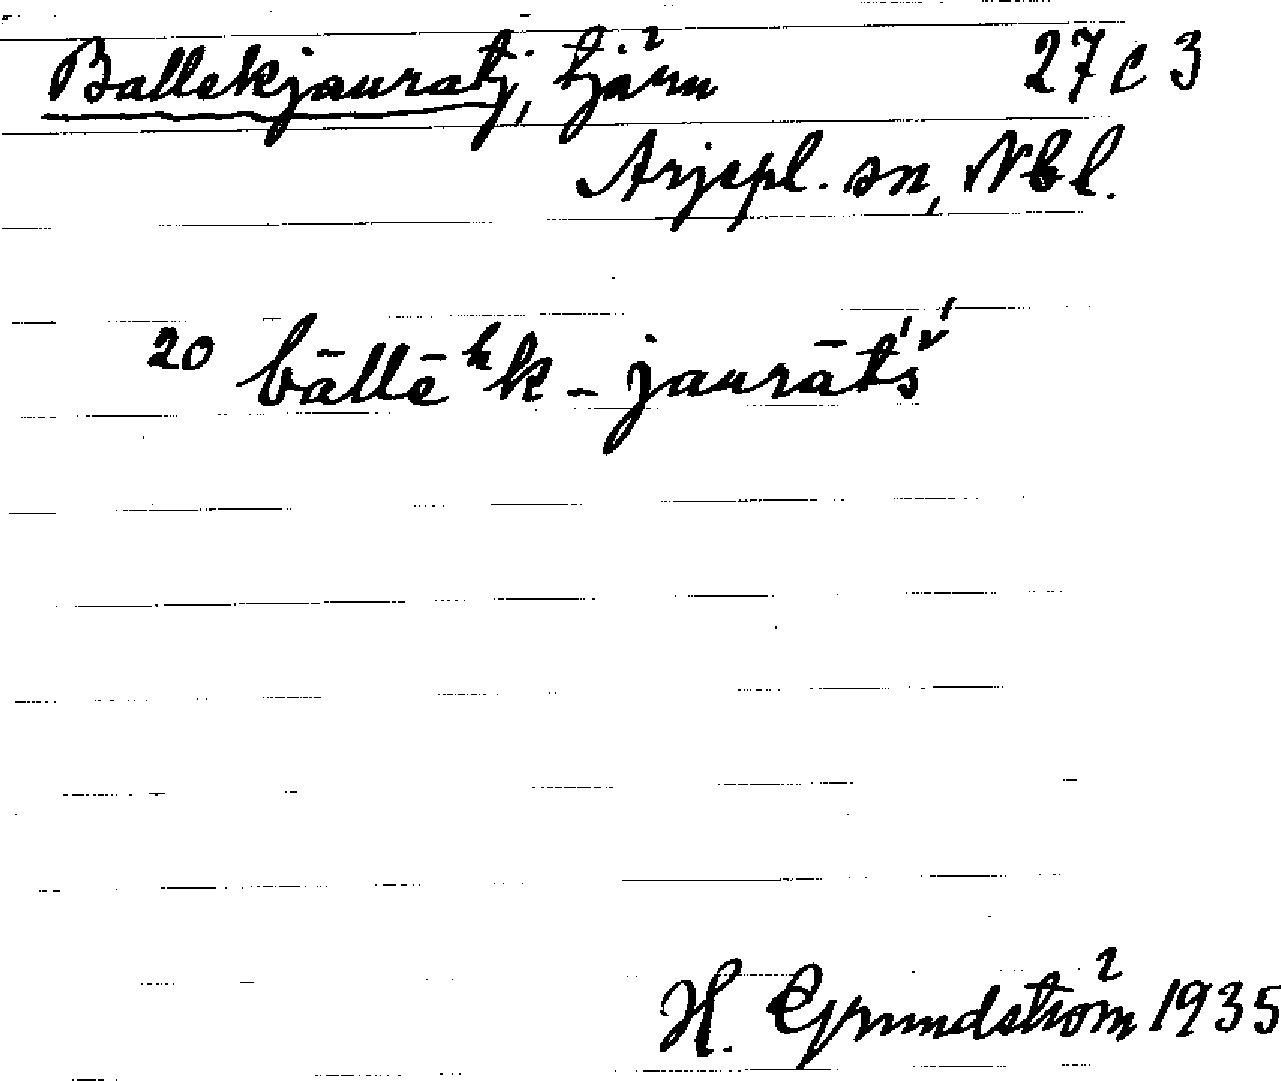 Ballekjauratj, tjärn 27 c 3
Arjepl. sn, Nbl.
20 bāllē ʰk - jaurāt́š́
H. Grundström 1935